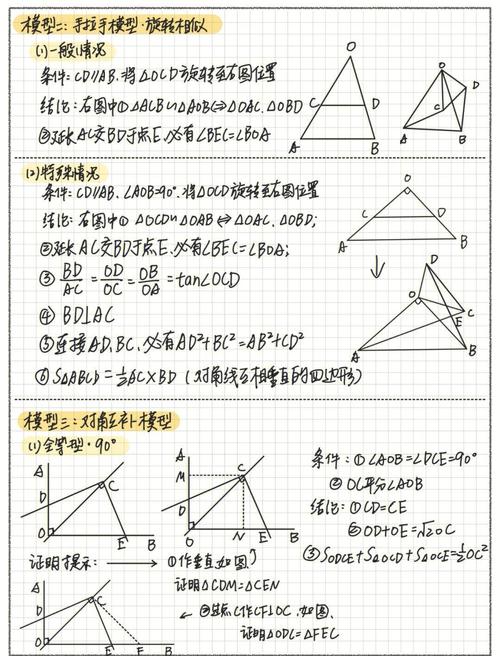 模型二：手拉手模型·旋转相似
(1)一般情况
条件：CD∥AB，将△OCD旋转至右图位置
结论：右图中①△OCD∽△OAB⇔△OAC∽△OBD
②延长AC交BD于点E，必有∠BEC=∠BOA
O
C
D
A
B
O
D
C
A
B
(2)特殊情况
条件：CD∥AB，∠AOB=90°，将△OCD旋转至右图位置
结论：右图中①△OCD∽△OAB⇔△OAC∽△OBD；
②延长AC交BD于点E，必有∠BEC=∠BOA；
③ BD/AC = OD/OC = OB/OA = tan∠OCD
④ BD⊥AC
⑤连接AD、BC，必有AD²+BC²=AB²+CD²
⑥S△ABCD=½AC×BD（对角线互相垂直的四边形）
O
C
D
A
B
D
O
C
E
A
B
模型三：对角互补模型
(1)全等型·90°
A
D
C
O
E
B
A
M
C
D
O
N
E
B
条件：①∠AOB=∠DCE=90°
②OC平分∠AOB
结论：①CD=CE
②OD+OE=√2OC
③S△DCE+S△OCD+S△OCE=½OC²
证明提示：
①作垂直，如图，
证明△CDM≌△CEN
②过点C作CF⊥OC，如图，
证明△ODC≌△FEC
A
D
C
O
E
F
B